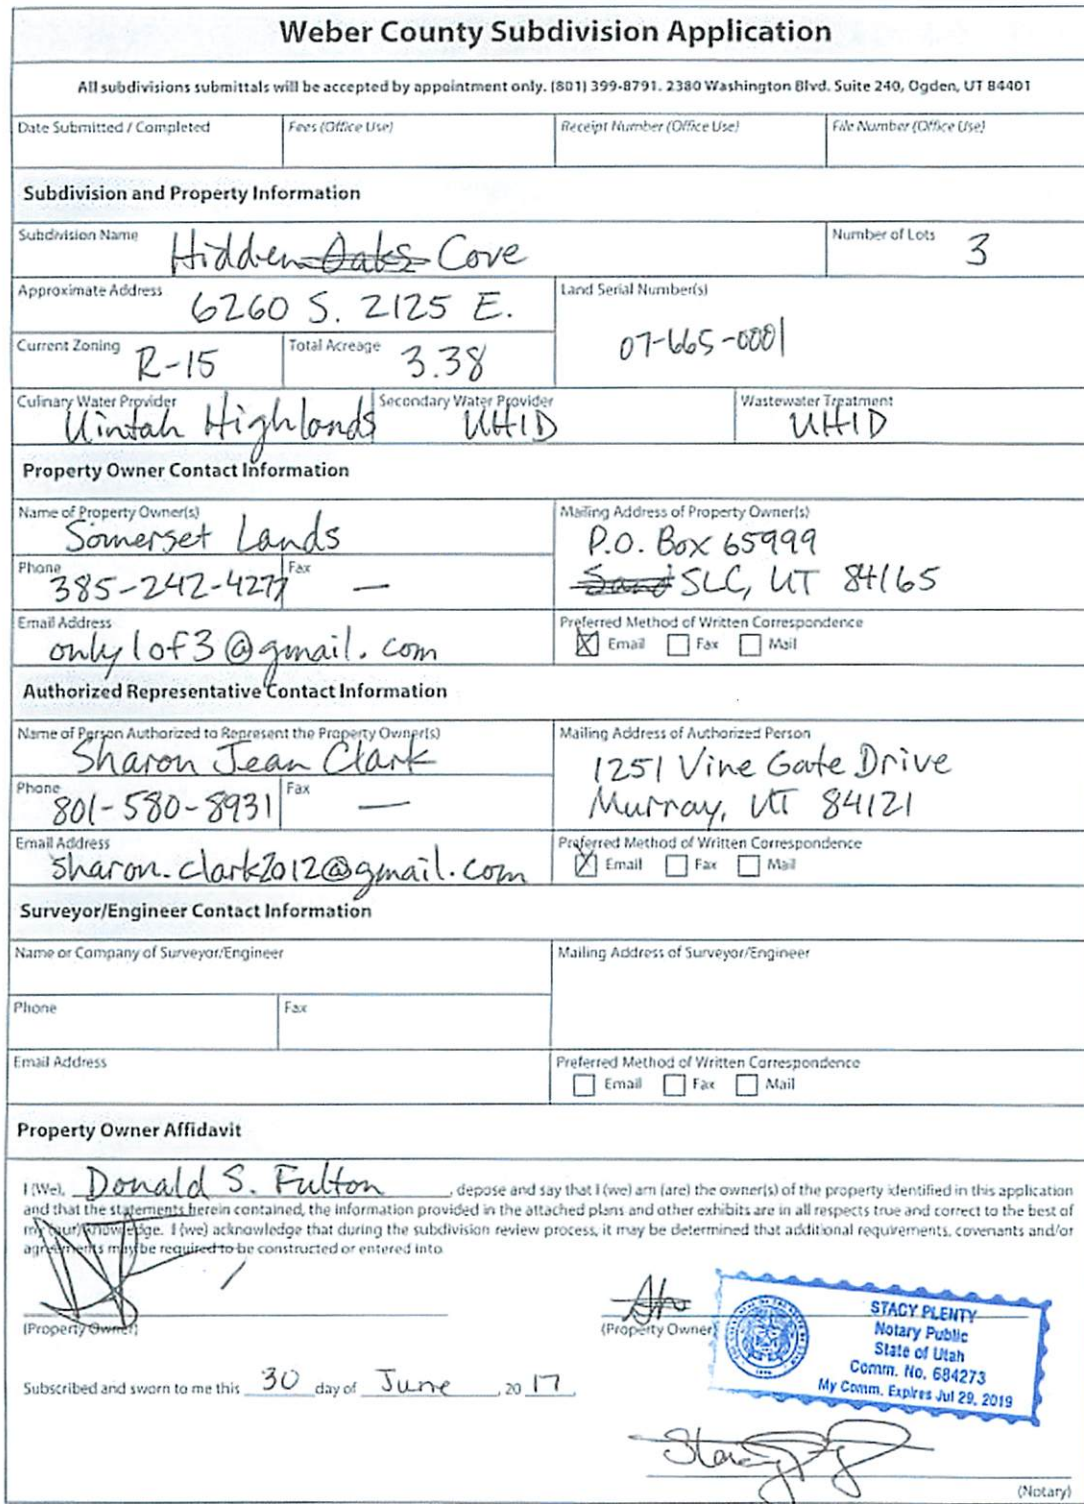 Weber County Subdivision Application
All subdivisions submittals will be accepted by appointment only. (801) 399-8791. 2380 Washington Blvd. Suite 240, Ogden, UT 84401
Date Submitted / Completed
Fees (Office Use)
Receipt Number (Office Use)
File Number (Office Use)
Subdivision and Property Information
Subdivision Name
Hidden Oaks Cove
Number of Lots
3
Approximate Address
6260 S. 2125 E.
Land Serial Number(s)
07-665-0001
Current Zoning
R-15
Total Acreage
3.38
Culinary Water Provider
Uintah Highlands
Secondary Water Provider
UHID
Wastewater Treatment
UHID
Property Owner Contact Information
Name of Property Owner(s)
Somerset Lands
Mailing Address of Property Owner(s)
P.O. Box 65999
Sand SLC, UT 84165
Phone
385-242-4277
Fax
—
Email Address
only1of3@gmail.com
Preferred Method of Written Correspondence
Email Fax Mail
Authorized Representative Contact Information
Name of Person Authorized to Represent the Property Owner(s)
Sharon Jean Clark
Mailing Address of Authorized Person
1251 Vine Gate Drive
Murray, UT 84121
Phone
801-580-8931
Fax
—
Email Address
sharon.clark2012@gmail.com
Preferred Method of Written Correspondence
Email Fax Mail
Surveyor/Engineer Contact Information
Name or Company of Surveyor/Engineer
Mailing Address of Surveyor/Engineer
Phone
Fax
Email Address
Preferred Method of Written Correspondence
Email Fax Mail
Property Owner Affidavit
I (We), Donald S. Fulton, depose and say that I (we) am (are) the owner(s) of the property identified in this application
and that the statements herein contained, the information provided in the attached plans and other exhibits are in all respects true and correct to the best of
my (our) knowledge. I (we) acknowledge that during the subdivision review process, it may be determined that additional requirements, covenants and/or
agreements may be required to be constructed or entered into
(Property Owner)
(Property Owner)
STACY PLENTY
Notary Public
State of Utah
Comm. No. 684273
My Comm. Expires Jul 29, 2019
Subscribed and sworn to me this 30 day of June, 20 17,
(Notary)